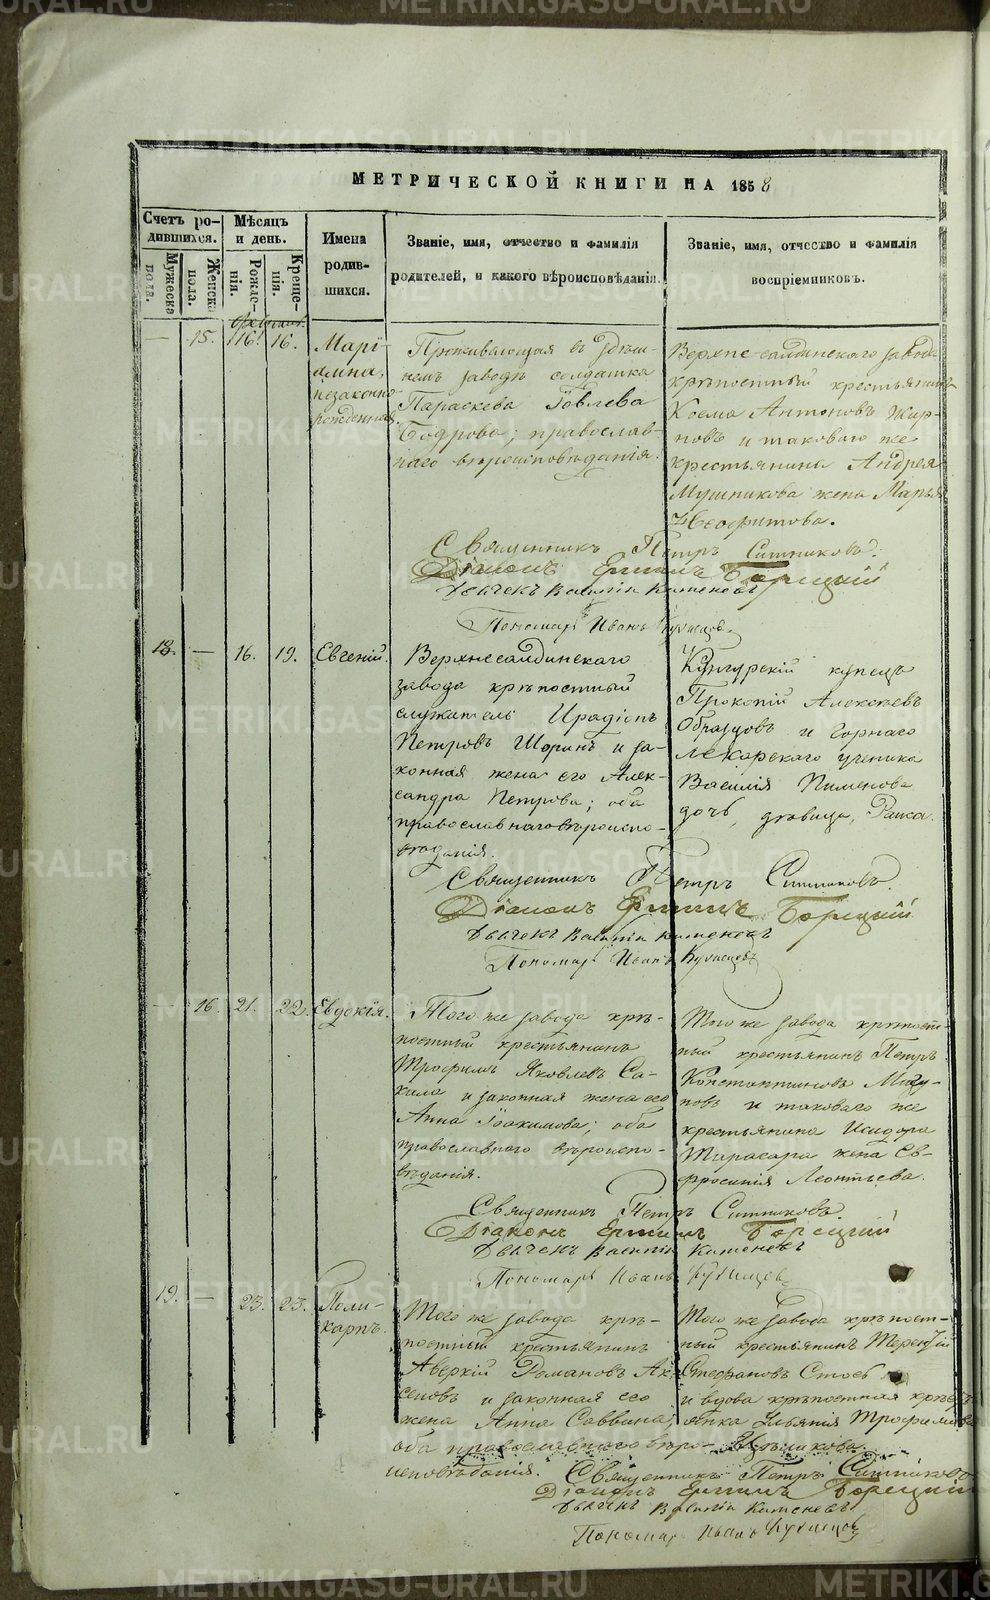 METRIKI.GASO-URAL.RU
МЕТРИЧЕСКОЙ КНИГИ НА 1858
Счетъ ро-
дившихся.
Мужеска
пола.
Женска
пола.
Мѣсяцъ
и день.
Рожде-
нія.
Креще-
нія.
Имена
родив-
шихся.
Званіе, имя, отчество и фамилія
родителей, и какого вѣроисповѣданія.
Званіе, имя, отчество и фамилія
воспріемниковъ.
— 15. 16. 16.
Марі-
амна,
незаконно-
рожденная.
Проживающая въ здѣш-
немъ заводѣ солдатка
Параскева Іовлева
Бодрова; православ-
наго вѣроисповѣданія.
Верхне-салдинскаго завода
крѣпостный крестьянинъ
Козма Антоновъ
и таковаго же
крестьянина Андрея
Мушникова жена Марья
Неофитова.
Священникъ Петръ Ситниковъ.
Діаконъ Борецкій
Дьячекъ Василій Каменевъ
Пономарь Иванъ Кузнецовъ
18. — 16. 19. Евгеній.
Верхнесалдинскаго
завода крѣпостный
служитель Иродіонъ
Петровъ Шоринъ и за-
конная жена его Алек-
сандра Петрова; оба
православнаго вѣроиспо-
вѣданія.
Кунгурскій купецъ
Прокопій Алексѣевъ
Образцовъ и Горнаго
лекарскаго ученика
Василія Пименова
дочь, дѣвица, Раиса.
Священникъ Петръ Ситниковъ.
Діаконъ Борецкій
Дьячекъ Василій Каменевъ
Пономарь Иванъ Кузнецовъ
— 16. 21. 22. Евдокія.
Того же завода крѣ-
постный крестьянинъ
Трофимъ Яковлевъ Са-
и законная жена его
Анна Іоакимова; оба
православнаго вѣроиспо-
вѣданія.
Того же завода крѣпост-
ный крестьянинъ Петръ
Константиновъ
и таковаго же
крестьянина Исидора
жена Ев-
фросинія Леонтьева.
Священникъ Петръ Ситниковъ
Діаконъ Борецкій
Дьячекъ Василій Каменевъ
Пономарь Иванъ Кузнецовъ
19. — 23. 23. Поли-
карпъ.
Того же завода крѣ-
постный крестьянинъ
Аверкій Романовъ Ак-
сеновъ и законная его
жена Анна Саввина;
оба православнаго вѣро-
исповѣданія.
Того же завода крѣпост-
ный крестьянинъ Терентій
Стефановъ
и вдова крѣпостная
Трофимова
Священникъ Петръ Ситниковъ
Діаконъ Борецкій
Дьячекъ Василій Каменевъ
Пономарь Иванъ Кузнецовъ
METRIKI.GASO-URAL.RU